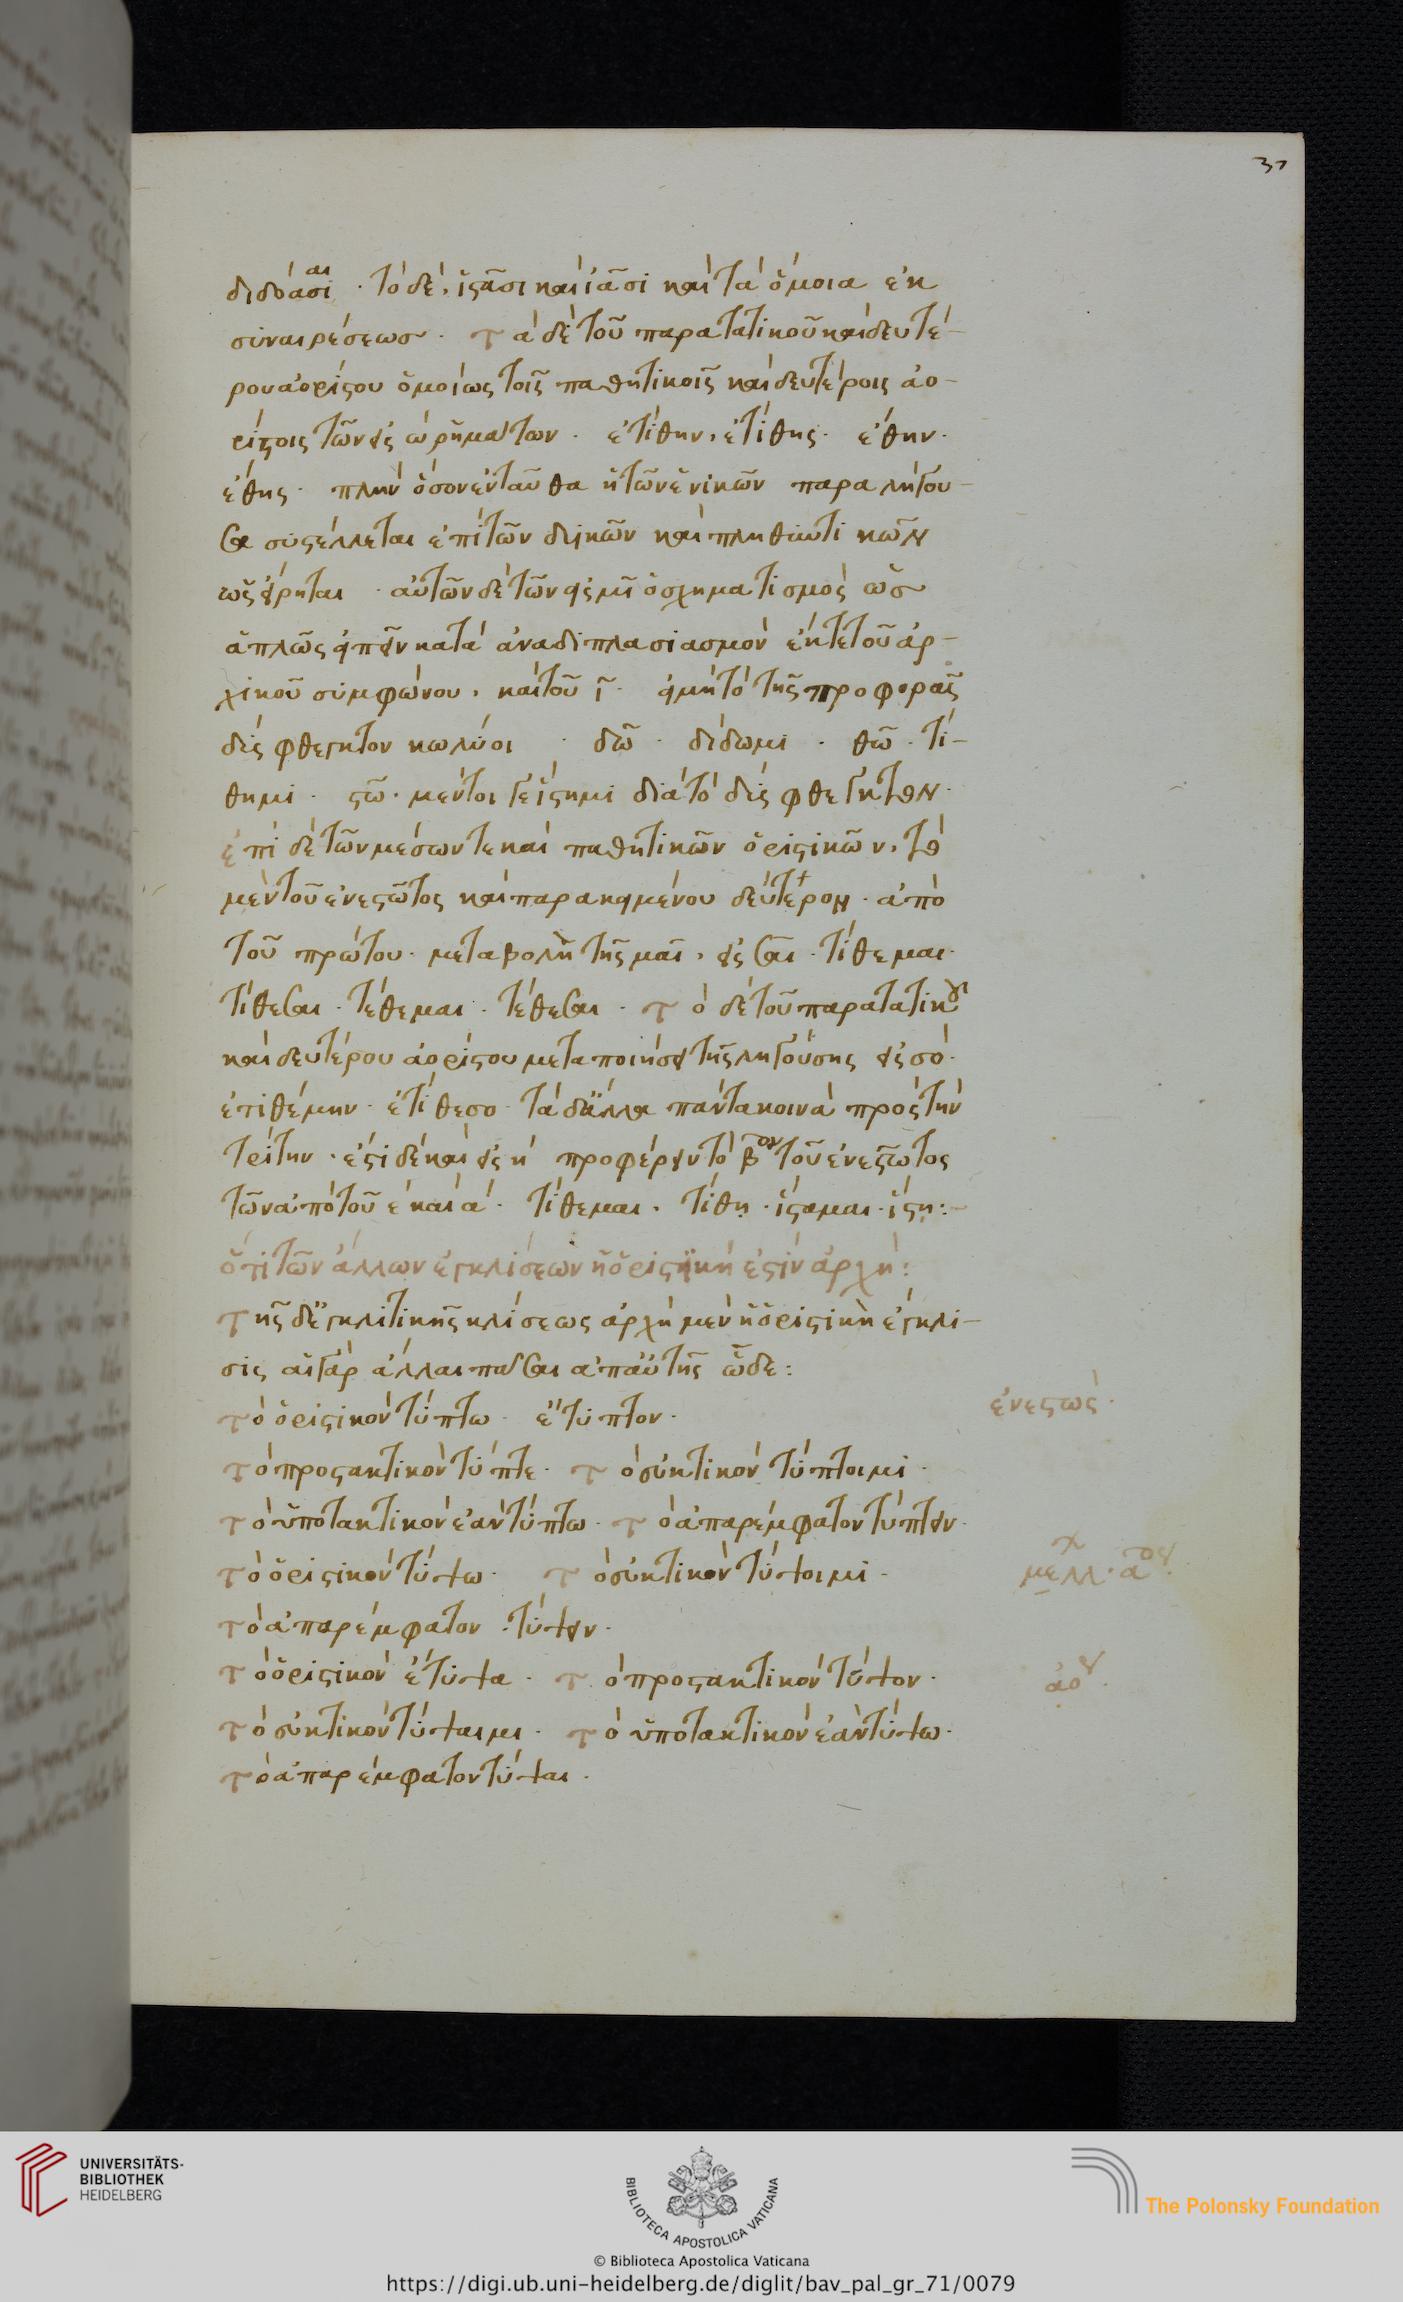 37
διδόασι · τὸ δὲ, ἱστᾶσι καὶ ἱᾶσι καὶ τὰ ὅμοια ἐκ
συναιρέσεως · τὰ δὲ τοῦ παρατατικοῦ καὶ δευτέ-
ρου ἀορίστου ὁμοίως τοῖς παθητικοῖς καὶ δευτέροις ἀο-
ρίστοις τῶν εἰς ω ῥημάτων · ἐτίθην, ἐτίθης · ἔθην ·
ἔθης · πλὴν ὅσον ἐνταῦθα ἡ τῶν ἑνικῶν παραλήγου-
σα συστέλλεται ἐπὶ τῶν δυικῶν καὶ πληθυντικῶν
ὡς εἴρηται · αὐτῶν δὲ τῶν εἰς μι ὁ σχηματισμὸς ὡς
ἁπλῶς εἰπεῖν κατὰ ἀναδιπλασιασμὸν ἔκ τε τοῦ ἀρ-
χικοῦ συμφώνου, καὶ τοῦ ι · εἰ μή τὸ τῆς προφορᾶς
δὶς φθεγκτὸν κωλύοι · δῶ · δίδωμι · θῶ · τί-
θημι · στῶ · μέντοι γε ἵστημι διὰ τὸ δὶς φθεγκτὸν ·
ἐπὶ δὲ τῶν μέσων τε καὶ παθητικῶν ὁριστικῶν, τὸ
μὲν τοῦ ἐνεστῶτος καὶ παρακειμένου δεύτερον · ἀπὸ
τοῦ πρώτου · μεταβολῇ τῆς μαι, εἰς σαι · τίθεμαι ·
τίθεσαι · τέθεμαι · τέθεσαι · τὸ δὲ τοῦ παρατατικοῦ
καὶ δευτέρου ἀορίστου μεταποιήσει τῆς ληγούσης εἰς σο ·
ἐτιθέμην · ἐτίθεσο · τὰ δ' ἄλλα πάντα κοινὰ πρὸς τὴν
τρίτην · ἔστι δὲ καὶ εἰς η προφέρειν τὸ βον τοῦ ἐνεστῶτος
τῶν ἀπὸ τοῦ ε καὶ α · τίθεμαι, τίθη · ἵσταμαι · ἵστη :-
ὅτι τῶν ἄλλων ἐγκλίσεων ἡ ὁριστική ἐστιν ἀρχή :
τῆς δ' ἐγκλιτικῆς κλίσεως ἀρχὴ μὲν ἡ ὁριστικὴ ἔγκλι-
σις αἱ γὰρ ἄλλαι πᾶσαι ἀπ' αὐτῆς ὧδε :
τὸ ὁριστικὸν τύπτω · ἔτυπτον · ἐνεστώς ·
τὸ προστακτικὸν τύπτε · τὸ εὐκτικὸν τύπτοιμι ·
τὸ ὑποτακτικὸν ἐὰν τύπτω · τὸ ἀπαρέμφατον τύπτειν ·
τὸ ὁριστικὸν τύψω · τὸ εὐκτικὸν τύψοιμι · μελλ · αου
τὸ ἀπαρέμφατον · τύψειν ·
τὸ ὁριστικὸν ἔτυψα · τὸ προστακτικὸν τύψον · ἀορ ·
τὸ εὐκτικὸν τύψαιμι · τὸ ὑποτακτικὸν ἐὰν τύψω ·
τὸ ἀπαρέμφατον τύψαι ·
UNIVERSITÄTS-
BIBLIOTHEK
HEIDELBERG
BIBLIOTECA APOSTOLICA VATICANA
The Polonsky Foundation
© Biblioteca Apostolica Vaticana
https://digi.ub.uni-heidelberg.de/diglit/bav_pal_gr_71/0079